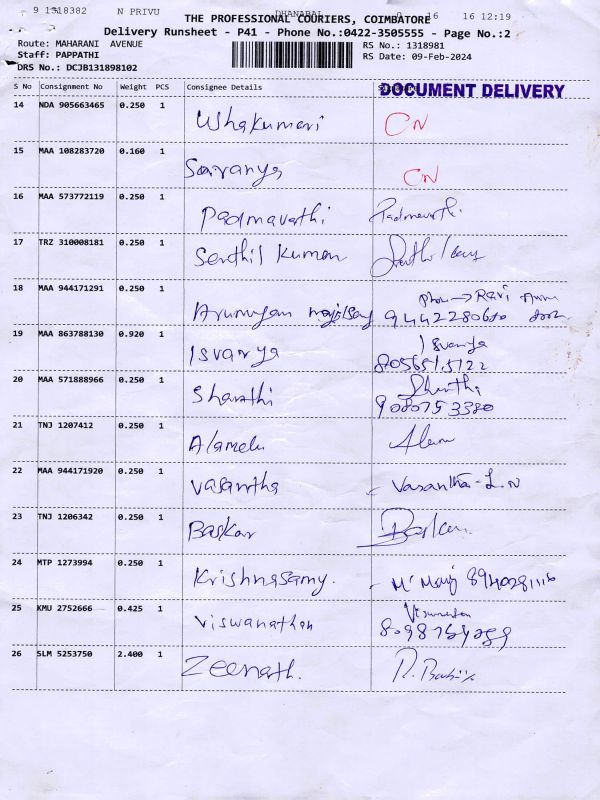 9 1318382 N PRIVU DHANABAL 0 16 16 12:19
THE PROFESSIONAL COURIERS, COIMBATORE
Delivery Runsheet - P41 - Phone No.:0422-3505555 - Page No.:2
Route: MAHARANI AVENUE RS No.: 1318981
Staff: PAPPATHI RS Date: 09-Feb-2024
DRS No.: DCJB131898102
S No Consignment No Weight PCS Consignee Details DOCUMENT DELIVERY
14 NDA 905663465 0.250 1 Ushakumari CN
15 MAA 108283720 0.160 1 Saranya CN
16 MAA 573772119 0.250 1 Padmavathi Padmavathi
17 TRZ 310008181 0.250 1 Senthil Kumar
18 MAA 944171291 0.250 1 Arumugam Phon → Ravi
9442280680
19 MAA 863788130 0.920 1 Isvarya Isvarya
8056515122
20 MAA 571888966 0.250 1 Sharathi Shanthi
9080753380
21 TNJ 1207412 0.250 1 Alamelu Alam
22 MAA 944171920 0.250 1 Vasantha Vasantha-L.N
23 TNJ 1206342 0.250 1 Baskar Baskar
24 MTP 1273994 0.250 1 Krishnasamy.
25 KMU 2752666 0.425 1 Viswanathan
26 SLM 5253750 2.400 1 Zeenath.